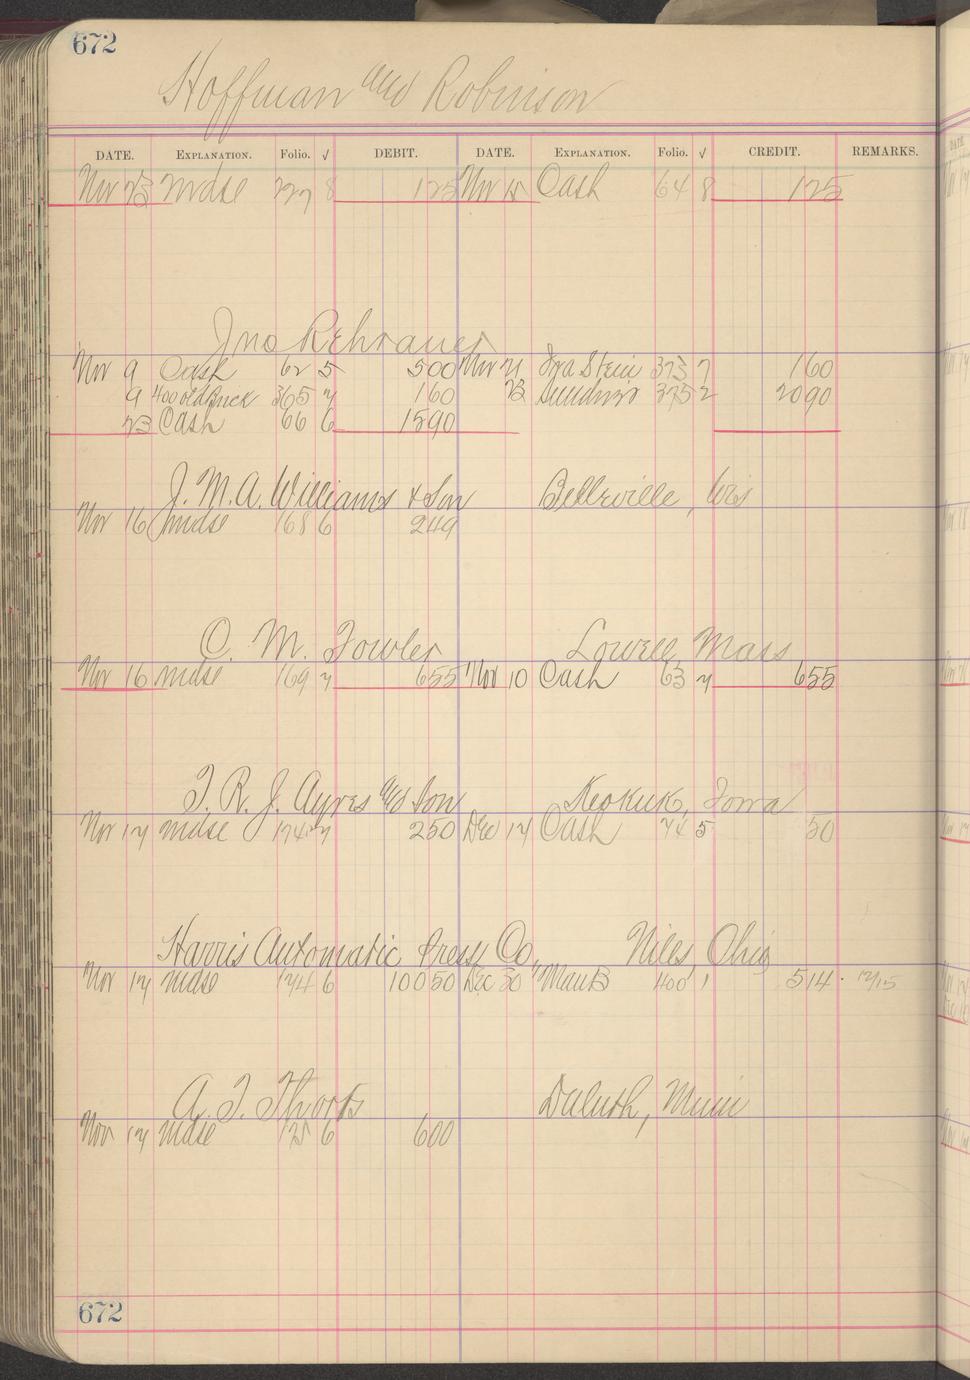 672
Hoffman and Robinson
DATE. EXPLANATION. Folio. √ DEBIT. DATE. EXPLANATION. Folio. √ CREDIT. REMARKS.
Nov 23 Mdse 227 8 125 Nov 15 Cash 64 8 125
Jno Rehrauer
Nov 9 Cash 62 5 500 Nov 21 Ira Stein 373 7 160
9 400 old Brick 365 7 160 23 Sundries 375 2 2090
23 Cash 66 6 1590
J. M. A. Williams & Son Belleville, Wis
Nov 16 mdse 168 6 249
C. M. Fowler Lowell Mass
Nov 16 mdse 169 7 655 Nov 10 Cash 63 7 655
T. R. J. Ayres and Son Keokuk, Iowa
Nov 17 mdse 174 7 250 Dec 17 Cash 74 5 50
Harris Automatic Press Co, Niles, Ohio
Nov 17 mdse 174 6 10050 Dec 30 400 1 514 12/15
A. T. Duluth, Minn
Nov 17 mdse 6 600
672